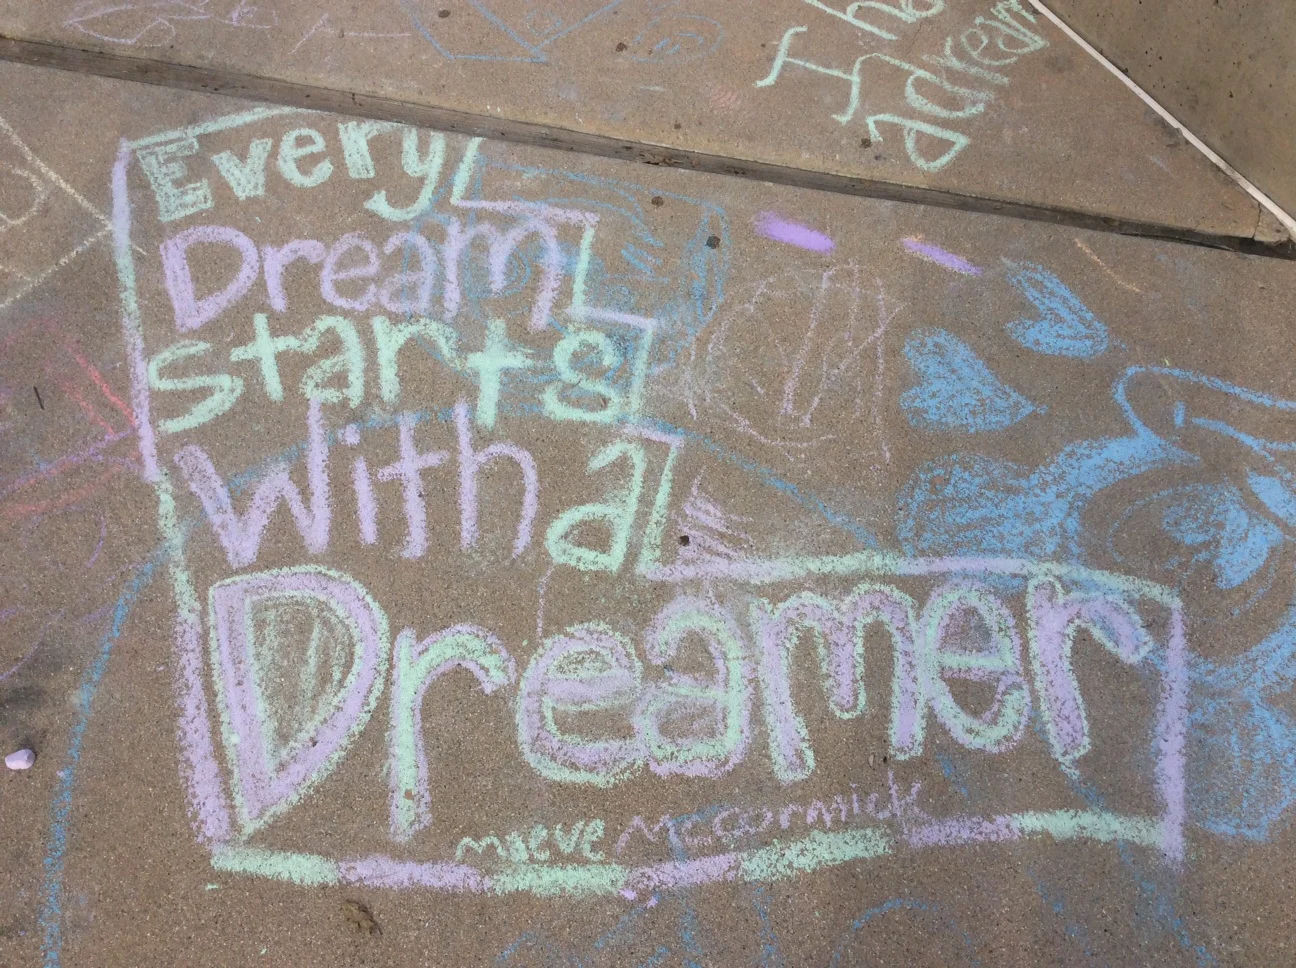 I ha
a dream
Every
Dream
starts
with a
Dreamer
maeve McCormick